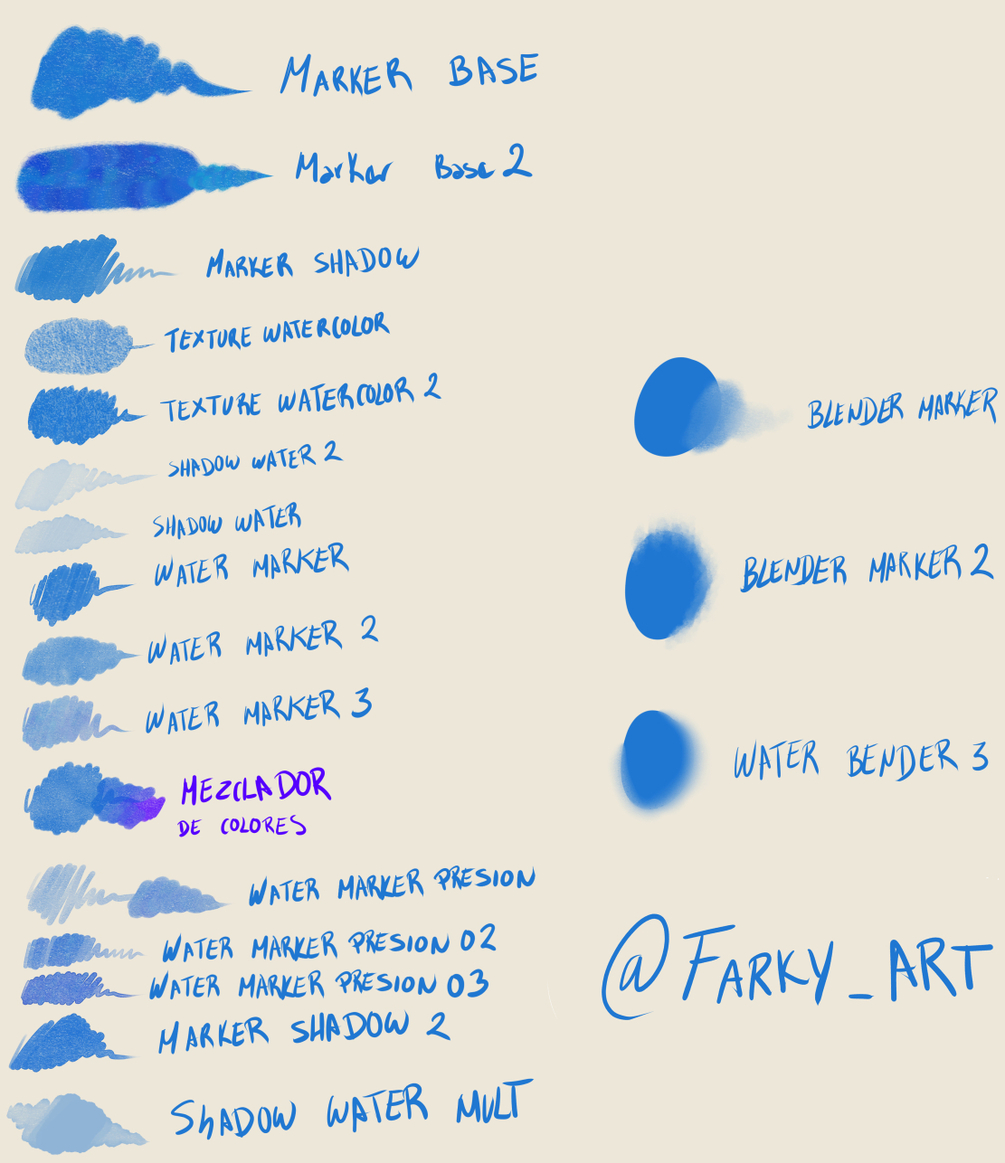 MARKER BASE
Marker Base 2
MARKER SHADOW
TEXTURE WATERCOLOR
TEXTURE WATERCOLOR 2
SHADOW WATER 2
SHADOW WATER
WATER MARKER
WATER MARKER 2
WATER MARKER 3
MEZCLADOR
DE COLORES
WATER MARKER PRESION
WATER MARKER PRESION 02
WATER MARKER PRESION 03
MARKER SHADOW 2
SHADOW WATER MULT
BLENDER MARKER
BLENDER MARKER 2
WATER BENDER 3
@FARKY_ART